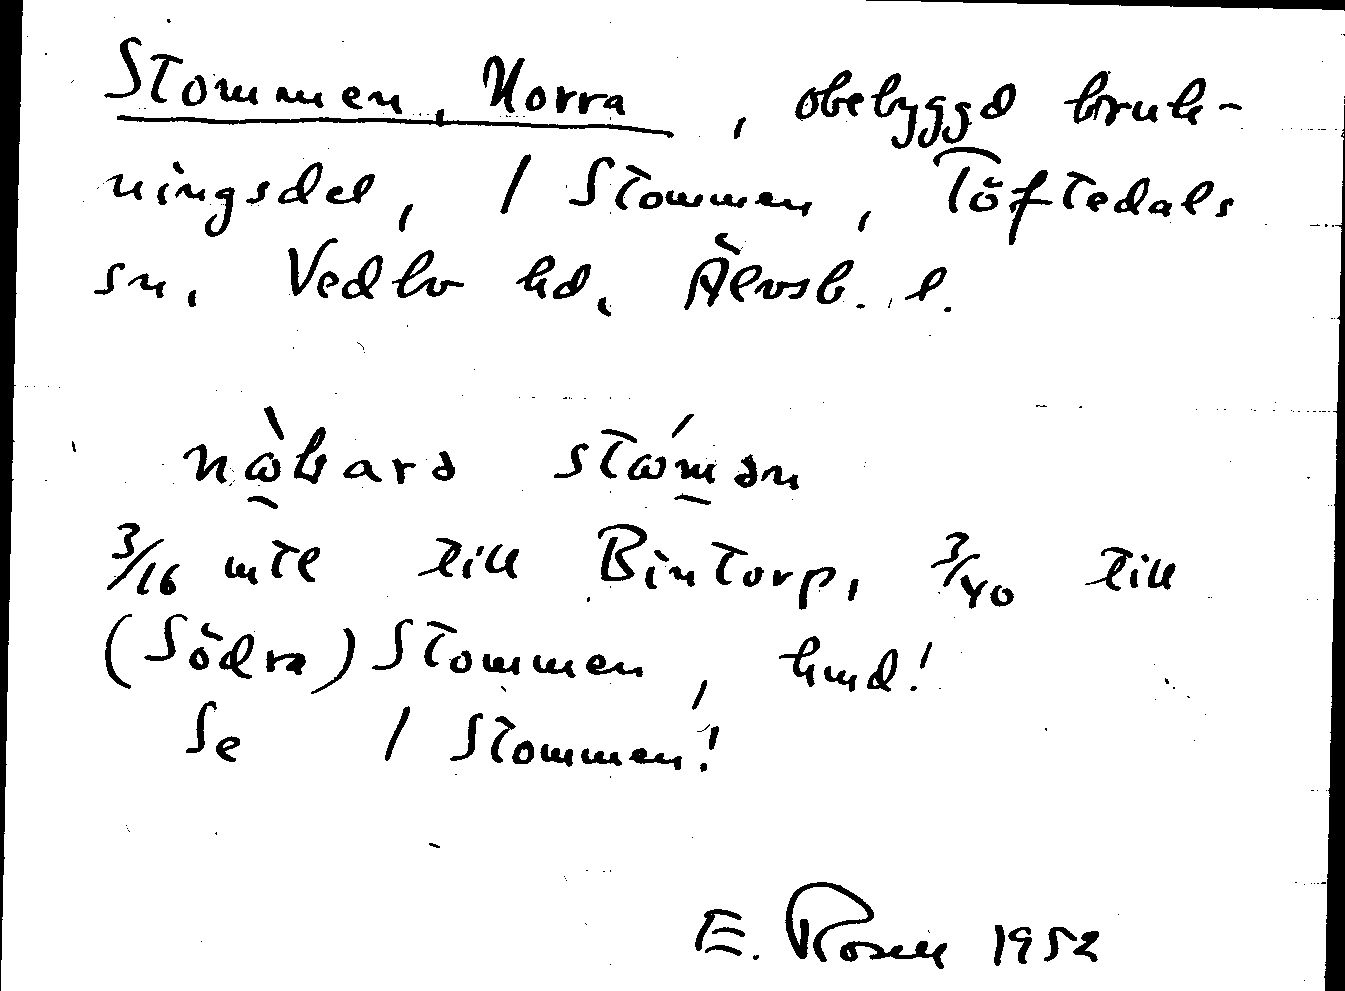 Stommen, Norra, obebyggd bruk-
ningsdel, / Stommen, Töftedals
sn, Vedbo hd, Älvsb. l.
3/16 mtl till Bintorp, 3/40 till
(Södra) Stommen, hmd!
Se / Stommen!
E. Rosell 1952